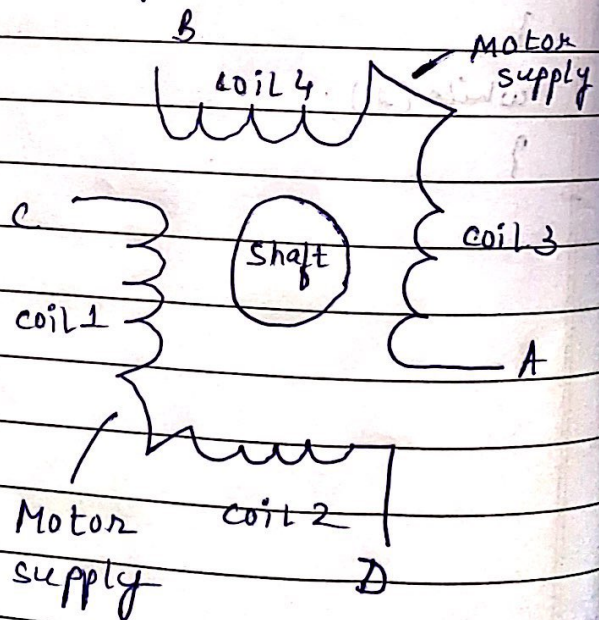 B
Motor
supply
coil 4
C
Shaft
coil 3
coil 1
A
Motor
supply
coil 2
D